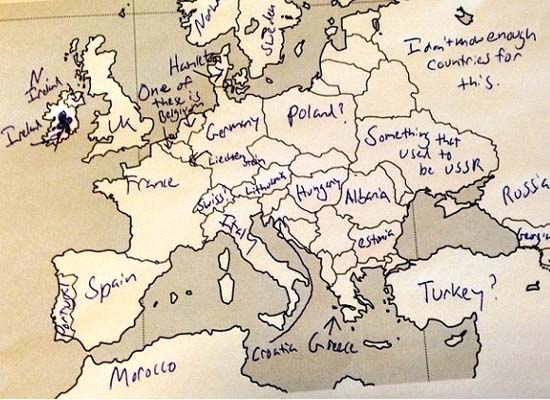 Norw
Sweden
I don't know enough
countries for
this.
N.
Ireland
Ireland
UK
Hamlet
One of
these is
Belgium
Germany
Poland?
Something that
used to
be USSR
Russia
Georgia
Liechtenstein
France
Swiss!
Lithuania
Hungary
Albania
Italy
Estonia
Portugal
Spain
Turkey?
Croatia
Greece
Morocco